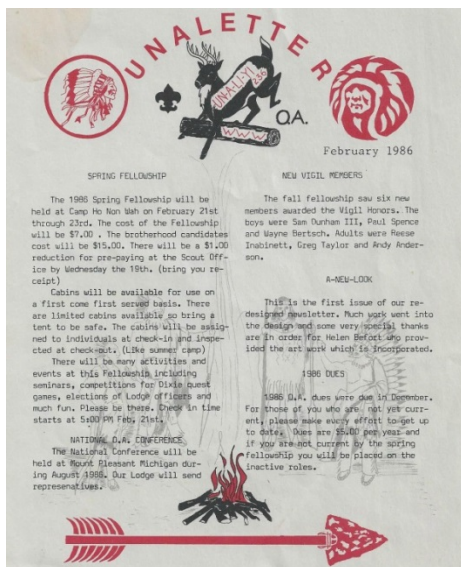 UNALETTER
UN-A-LI-YI
236
WWW
O.A.
February 1986
SPRING FELLOWSHIP
The 1986 Spring Fellowship will be
held at Camp Ho Non Wah on February 21st
through 23rd. The cost of the Fellowship
will be $7.00 . The brotherhood candidates
cost will be $15.00. There will be a $1.00
reduction for pre-paying at the Scout Off-
ice by Wednesday the 19th. (bring you re-
ceipt)
Cabins will be available for use on
a first come first served basis. There
are limited cabins available so bring a
tent to be safe. The cabins will be assig-
ned to individuals at check-in and inspe-
cted at check-out. (Like summer camp)
There will be many activities and
events at this Fellowship including
seminars, competitions for Dixie quest
games, elections of Lodge officers and
much fun. Please be there. Check in time
starts at 5:00 PM Feb, 21st.
NATIONAL O.A. CONFERENCE
The National Conference will be
held at Mount Pleasant Michigan dur-
ing August 1986. Our Lodge will send
represenatives.
NEW VIGIL MEMBERS
The fall fellowship saw six new
members awarded the Vigil Honors. The
boys were Sam Dunham III, Paul Spence
and Wayne Bertsch. Adults were Reese
Inabinett, Greg Taylor and Andy Ander-
son.
A-NEW-LOOK
This is the first issue of our re-
designed newsletter. Much work went into
the design and some very special thanks
are in order for Helen Befort who prov-
ided the art work which is incorporated.
1986 DUES
1986 O.A. dues were due in December.
For those of you who are not yet curr-
ent, please make every effort to get up
to date. Dues are $5.00 per year and
if you are not current by the spring
fellowship you will be placed on the
inactive roles.